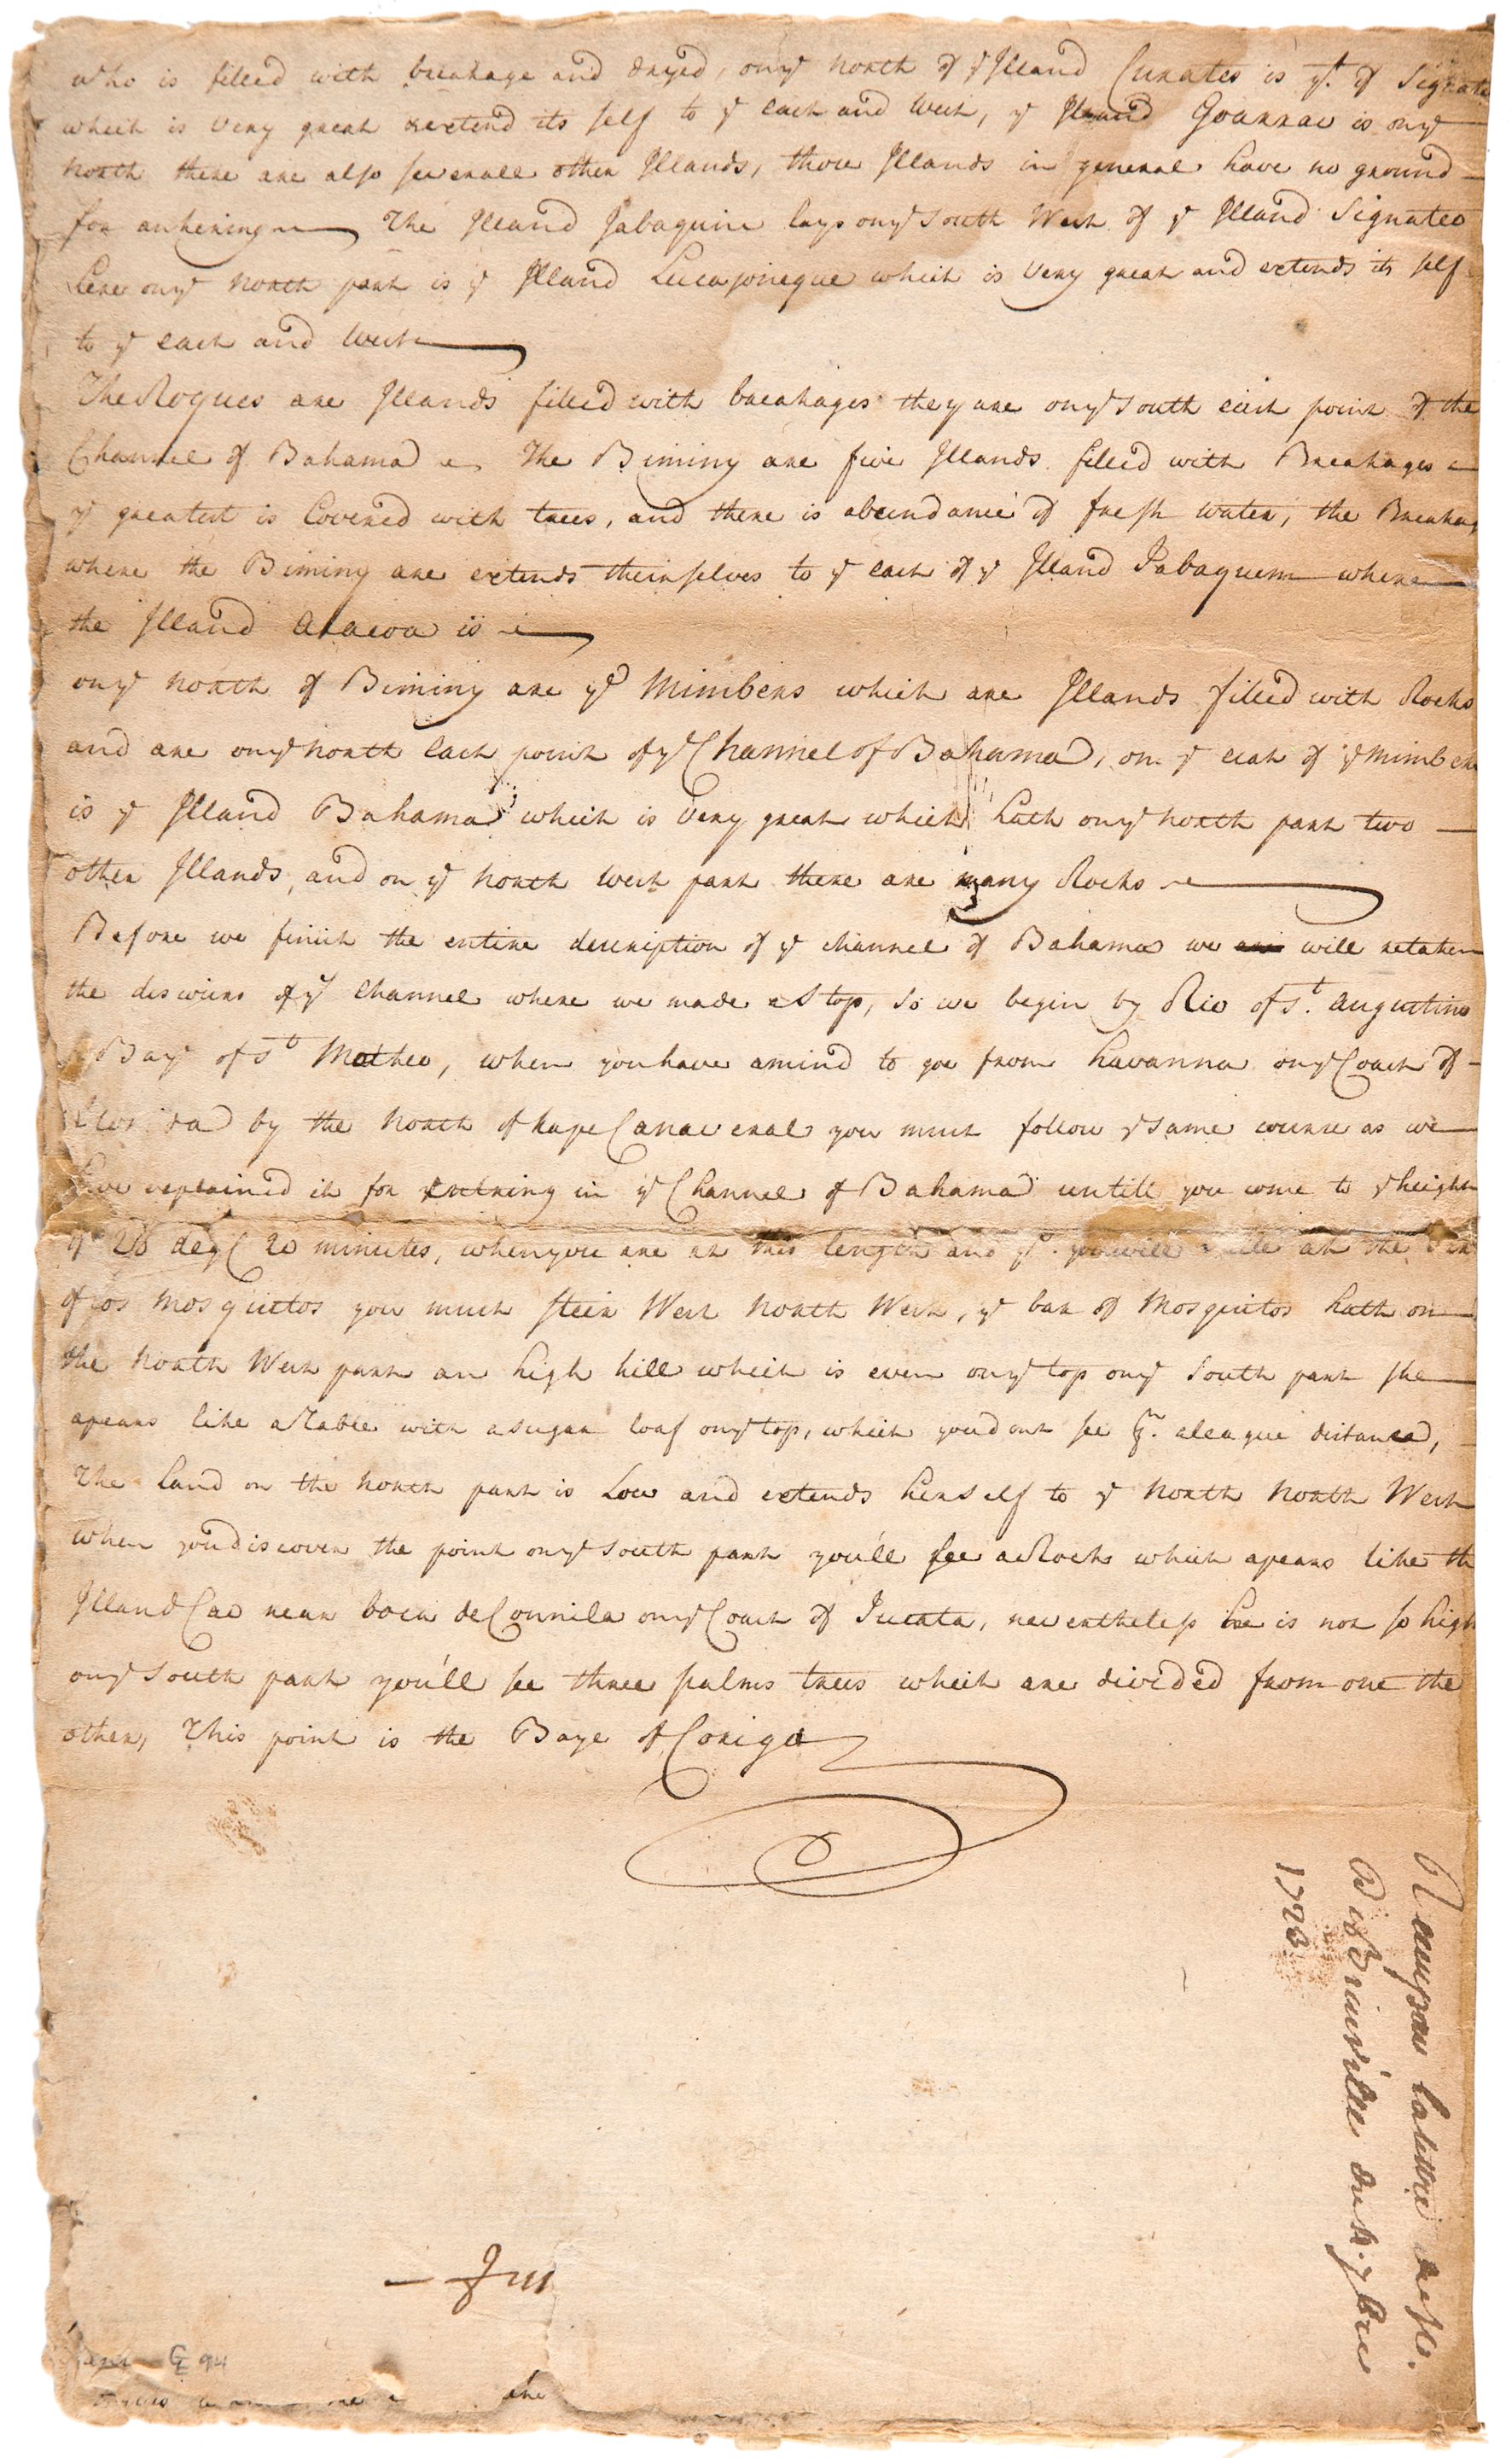 who is filled with breakage and dryed, on yͤ north of yͤ Jlland Curates is yͭ. of Signate
which is very great & extend its self to yͤ east and West, yͤ Jlland Goannae is on yͤ
north there are also severall other Jllands, those Jllands in general have no ground
for ankering The Jlland Jabaquin lays on yͤ South West of yͤ Jlland Signateo
here on yͤ north part is yͤ Jlland Lucajoneque which is very great and extends its self
to yͤ east and West
The Roques are Jllands filled with breakages they are on yͤ South east point of the
Channel of Bahama The Biminy are five Jllands filled with Breakages
yͤ greatest is Covered with trees, and there is abundance of fresh water, the Breakag
where the Biminy are extends themselves to yͤ east of yͤ Jlland Jabaquem where
the Jlland is
on yͤ north of Biminy are yͤ Mimbers which are Jllands filled with Rocks
and are on yͤ north East point of yͤ Channel of Bahama, on yͤ east of yͤ mimbers
is yͤ Jlland Bahama which is very great which hath on yͤ north part two
other Jllands, and on yͤ north west part there are many Rocks
Before we finish the entire description of yͤ channel of Bahama we will retaken
the discours of yͤ channel where we made a Stop, so we begin by Rio of Sͭ. Augustino
Bay of Sͭ Matheo, when you have a mind to goe from havanna on yͤ Coast of
by the north of kape Canaveral you must follow yͤ same course as we
have explained it for entring in yͤ Channel of Bahama untill you come to yͤ height
of 28 deg 20 minutes, when you are at this length and you will at the
of los Mosquitos you must steer West north West, yͤ bar of Mosquitos hath on
the North West part an high hill which is even on yͤ top on yͤ South part she
apears like a Table with a sugar loaf on yͤ top, which you d'ont see a league distanced,
The Land on the north part is Low and extends herself to yͤ North North West
when you discover the point on yͤ South part you'll see a Rock which apears like th
Jlland Cae near boca de Connila on yͤ Coast of Jucata, nevertheless he is not so high
on yͤ South part you'll see three palms trees which are divided from one the
other, This point is the Baye of Coriga
lalettre
de
1723
G 94